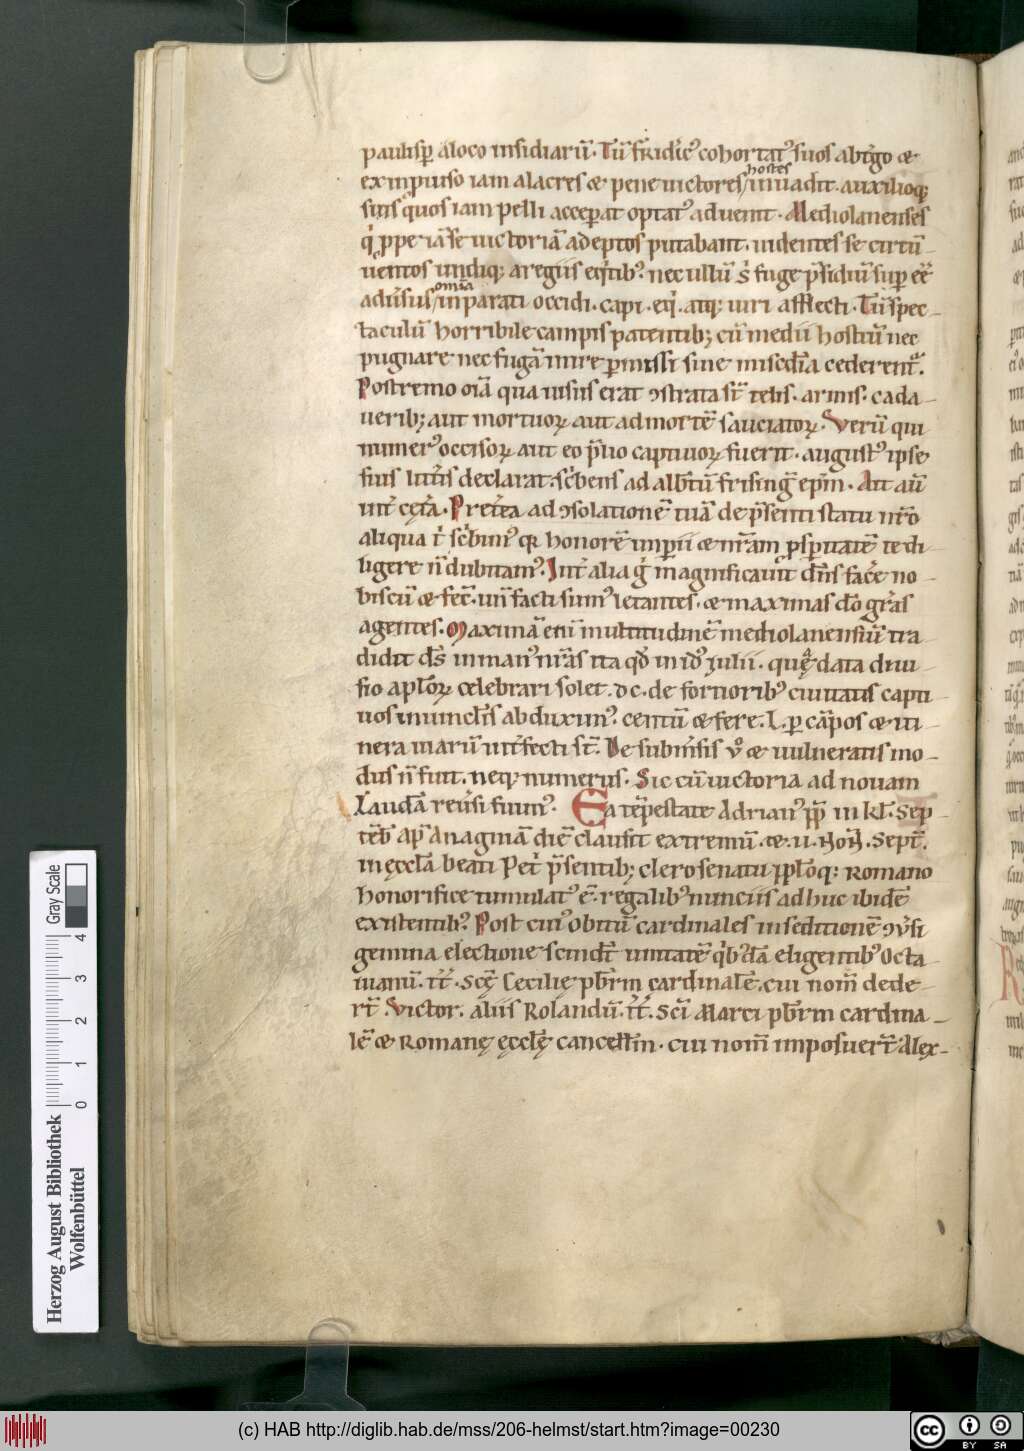 paulisp̱ aloco insidiarū. Tū fridic᷒ cohortat᷒ suos abt̓go &
eximp̱uiso iam alacres & pene uictores / hostes inuadit. auxilioq;
suis quos iam pelli accep̱at optat᷒ aduenit. Mediolanenses
q̓ p̱pe iā se uictoriā adeptos putabant. uidentes se circū-
uentos undiq; aregiis eq̓tib᷒. nec ullū s̓ fuge p̄sidiū sup̱ eē
aduʼsus / om̄ia inparati occidi. capi. eq̓. atq; uiri afflecti. Tū spec-
taculū horribile campis patentib; cū medii hostiū nec
pugnare nec fugā inire p̱missi sine misc̄dia cederent᷒.
Postremo oīā qua uisus erat ꝯstrata st̄ telis. armis. cada-
uerib; aut mortuoꝝ aut ad mortē sauciatoꝝ. Verū qui
numer᷒ occisoꝝ aut eo p̄lio captiuoꝝ fuerit. august᷒ ipse
suis litt̓is declarat. sc̓bens ad albt̄ū frisingē ep̄m. Ait aū
int̓ cęt̓a. Pret̓ea ad ꝯsolationē tuā de p̄senti statu nr̄o
aliqua t̓ sc̓bim᷒ qꝛ honorē imp̱ii & nr̄am ꝓsp̱itatē te di-
ligere n̄ dubitam᷒. Int̓ alia q̓ magnificauit dn̄s fac̓e no-
biscū & fec̄. un̄ facti sum᷒ letantes. & maximas dō gr̄as
agentes. Maximā eni multitudinē mediolanensiū tra-
didit ds̄ in man᷒ nr̄as ita qd̄ in id᷒ iulii. quę data diui-
sio aplōꝝ celebrari solet. dc. de fortiorib᷒ ciuitatis capti-
uos in uinclis abduxim᷒. centū & fere. l. p̱ cāpos & iti-
nera uiarū int̓fecti st̄. De subm̓sis ů & uulneratis mo-
dus n̄ fuit. neq; numerus. Sic cū uictoria ad nouam
Laudā reuʼsi sum᷒. Ea tēpestate Adrian᷒ pp̄ iii kl̄. Sep-
tēb ap̄ Anagniā diē clausit extremū. & .ii. Noñ. Sept̄.
in ęccl̄a beati Pet̓ p̄sentib; clero senatu pplōq; Romano
honorifice tumulat᷒ ē. regalib᷒ nunciis adhuc ibidē
existentib᷒. Post cui᷒ obitū cardinales in seditionē ꝯuʼsi
gemina electione scindt̄ unitatē q̓b᷒dā eligentib᷒ Octa-
uianū. tt̄. Scę Cecilię pbr̄m cardinalē. cui nom̄ dede-
rt̄ Victor. aliis Rolandū. tt̄. Sci Marci pbr̄m cardina-
lē & Romanę ęccl̄ę cancell̄m. cui nom̄ imposuert̄ Alex-
Gray Scale
4
3
2
1
0
Herzog August Bibliothek
Wolfenbüttel
(c) HAB http://diglib.hab.de/mss/206-helmst/start.htm?image=00230
cc
BY SA